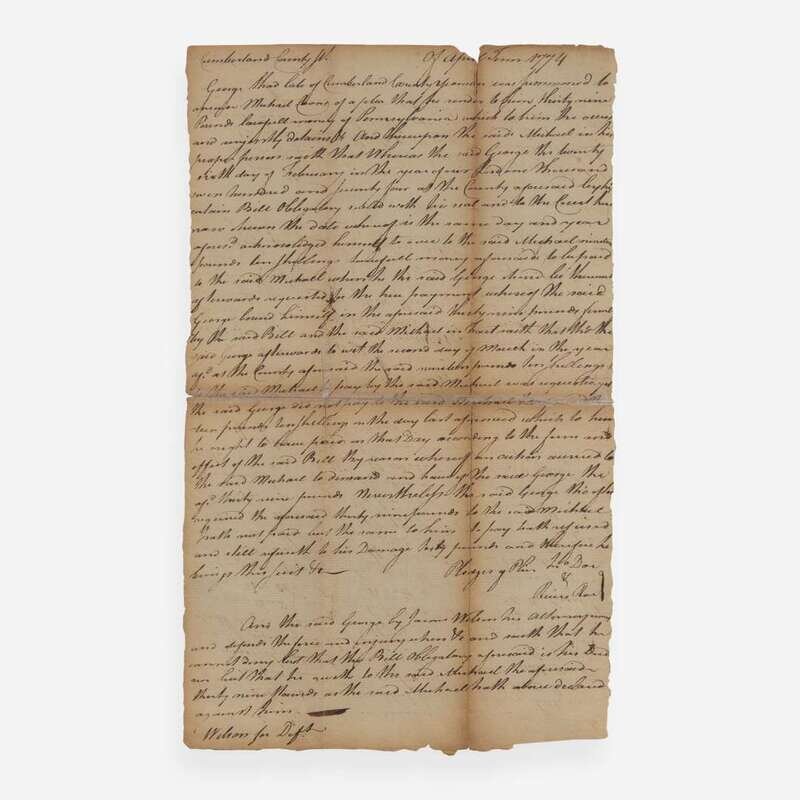 Cumberland County ss. Of April Term 1774
George late of Cumberland County yeoman was summoned to
answer Michael of a plea that he render to him thirty nine
Pounds lawfull money of Pennsylvania which to him he owes
and unjustly detains &c And thereupon the said Michael in his
proper person saith that Whereas the said George the twenty
sixth day of February in the year of our Lord one Thousand
seven hundred and seventy four at the County aforesaid by his
certain Bill Obligatory sealed with his seal and to the Court here
now shewn the date whereof is the same day and year
aforesd. acknowledged himself to owe to the said Michael nineteen
pounds ten shillings lawfull money aforesaid to be paid
to the said Michael when he the said George shoud be thereunto
afterwards requested for the true payment whereof the said
George bound himself in the aforesaid thirty nine pounds
by the said Bill and the said Michael in fact saith that tho the
said George afterwards to wit the second day of March in the year
afd. at the County aforesaid the said nineteen pounds ten shillings
to the said Michael to pay by the said Michael was requested yet
the said George did not pay to the said Michael the
teen pounds ten shillings on the day last aforesaid which to him
he ought to have paid on that Day according to the form and
effect of the said Bill By reason whereof an action accrued to
the said Michael to demand and have of the said George the
afd. thirty nine pounds Nevertheless the said George tho often
required the aforesaid thirty nine pounds to the said Michael
hath not paid but the same to him to pay hath refused
and still refuseth to his Damage forty pounds and therefore he
brings this suit &c Pledges Jno Doe
&
Richd Roe
And the said George by James Wilson his Attorney comes
and defends the force and injury when &c and saith that he
cannot deny but that the Bill Obligatory aforesaid is his Deed
nor but that he oweth to the said Michael the aforesaid
thirty nine Pounds as the said Michael hath above declared
against him.
Wilson for Deft.